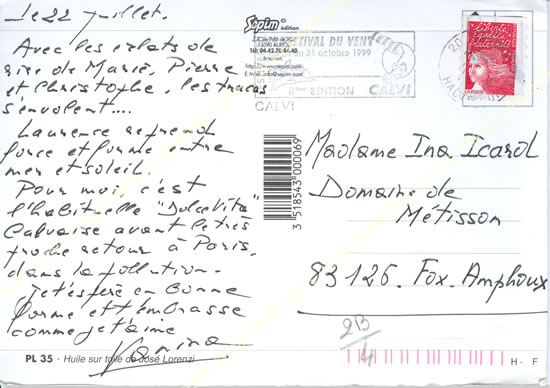 le 22 juillet.
Avec les éclats de
rire de Marie, Pierre
et Christophe, les tracas
s'envolent....
Laurence reprend
force et forme entre
mer et soleil.
Pour moi, c'est
l'habituelle "Dulce Vita"
Calvaise avant le très
proche retour à Paris,
dans la pollution.
Je t'espère en bonne
forme et t'embrasse
comme je t'aime
Vanina
PL 35 - Huile sur toile de José Lorenzi
Sepim édition
13390 AURIOL
Tél. 04.42.70.66.40
Internet
http://www.sepim.com
E.Mail: info@sepim.com
FESTIVAL DU VENT
au 31 octobre 1999
8ème EDITION
CALVI
CALVI
liberté
égalité
fraternité
LA POSTE
3 518543 000069
Madame Ina Icard
Domaine de
Métisson
83126. Fox. Amphoux
2B
4
H - F